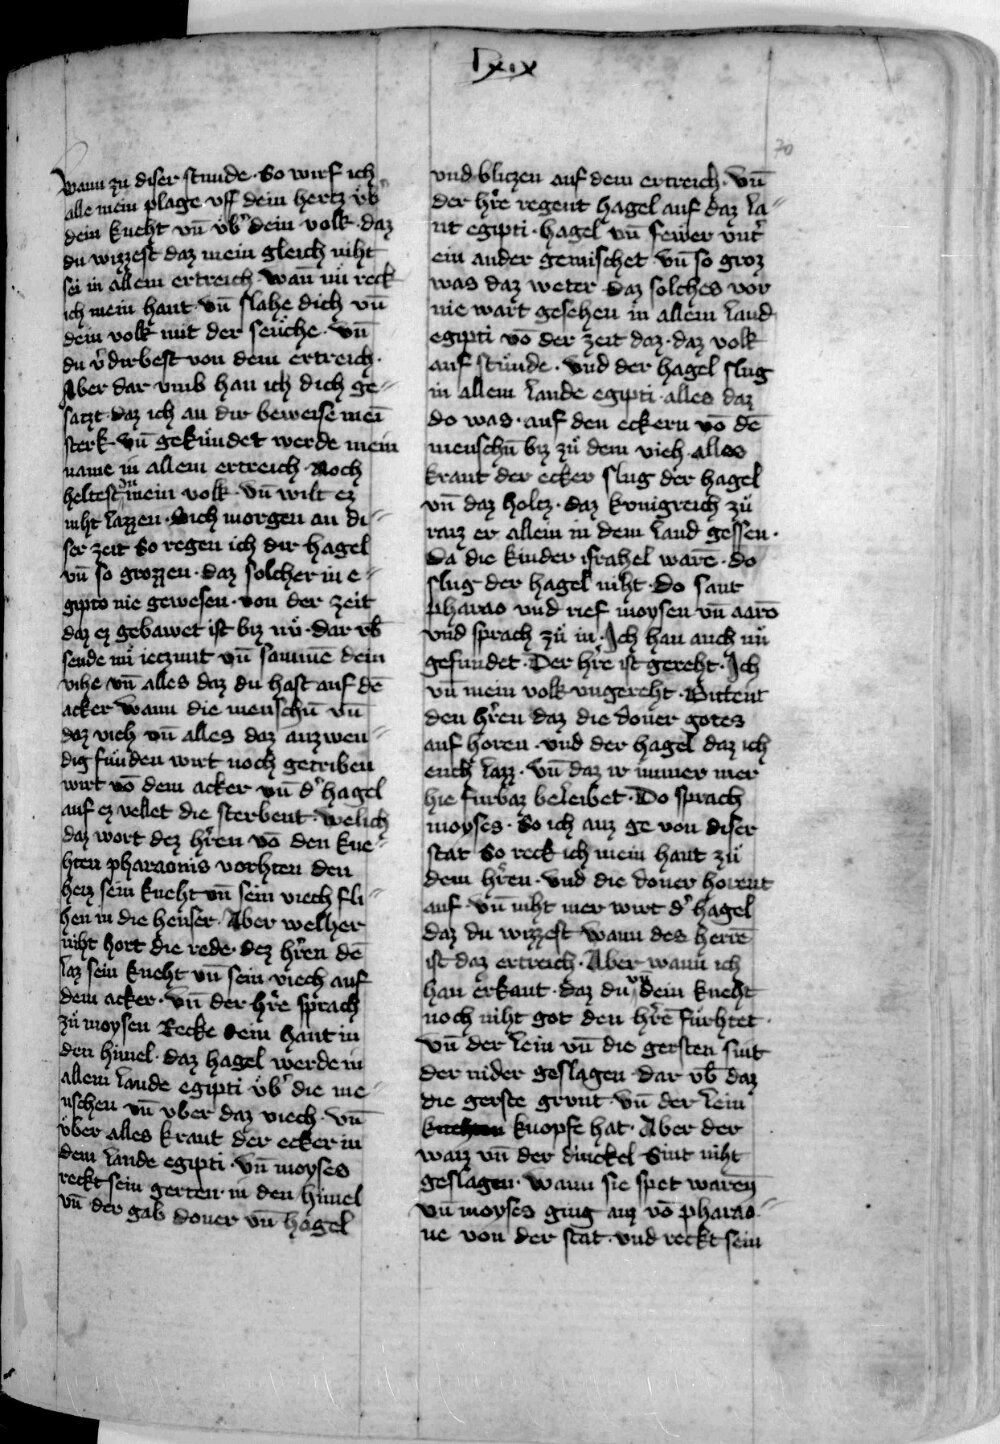 lxix
70
Wann zu diser stunde · So wirf ich
alle mein plage vff dein hertz v̈b͛
dein kneht vn̄ v̈b͛ dein volk · daz
du wizzest daz mein gleich niht
sei in allem ertreich · wan̄ nu̇ reck
ich mein hant vn̄ slahe dich vn̄
dein volk mit der seüche · Vn̄
du v͛dirbest von dem ertreich ·
Aber dar vmb han ich dich ge⸗
satzt · daz ich an dir beweise mei̅
sterk · Vn̄ gekündet werde mein
name in allem ertreich · Noch
heltest du mein volk · vn̄ wilt ez
niht lazzen · Sich morgen an di⸗
ser zeit So regen ich dir hagel
vn̄ so grozzen · daz solcher in e⸗
gipto nie gewesen · von der zeit
daz ez gebawet ist biz nů · dar vb̄
sende nů ieczunt vn̄ samme̅ dein
vihe vn̄ alles daz du hast auf de̅
acker wann die menschn̄ vn̄
daz vieh vn̄ alles daz auzwen⸗
dig funden wirt noch getriben
wirt vo̅ dem acker vn̄ d͛ hagel
auf ez vellet die sterbent · Welich
daz wort dez hr̄en vo̅ den kne⸗
hten pharaonis vorhten den
hiez sein kneht vn̄ sein viech fli⸗
hen in die heuser · Aber welher
niht hort die rede · dez hr̄en de̅
laz sein kneht vn̄ sein viech auf
dem acker · Vn̄ der hr̄e sprach
zů moysen Recke dein hant in
den himel · daz hagel werde in
allem lande egipti v̈b͛ die me⸗
nschen vn̄ vber daz viech · vn̄
v̈ber alles kraut der ecker in
dem lande egipti · Vn̄ moyses
reckt sein gerten · in den himel
vn̄ der gab doner vn̄ hagel
vnd bliczen auf dem ertreich · Vn̄
der hr̄e regent hagel auf daz la⸗
nt egipti · hagel vn̄ fewer vnt͛
ein ander gemischet vn̄ so groz
was daz weter · daz solches vor
nie wart gesehen in allem land
egipti vo̅ der zeit daz · daz volk
auf stünde · Vnd der hagel slug
in allem lande egipti · alles daz
do was · auf den eckern vo̅ de̅
menschn̄ biz zů dem vieh · alles
kraut der ecker slug der hagel
vn̄ daz holcz · daz konigreich zů
raiz er allein in dem land gessen ·
Da die kinder israhel ware̅ · do
slug der hagel niht · Do sant
pharao vnd rief moysen vn̄ aaro̅
vnd sprach zů in · Ich han auch nů
gesundet · Der hr̄e ist gereht · Ich
vn̄ mein volk vngereht · Bittent
den hr̄en daz die doner gotes
auf horen · vnd der hagel daz ich
euch lazz · Vn̄ daz ir immer mer
hie fürbaz beleibet · Do sprach
moyses · So ich auz ge von diser
stat So reck ich mein hant zů
dem hr̄en · vnd die doner horent
auf vn̄ niht mer wirt d͛ hagel
daz du wizzest wann des herre̅
ist daz ertreich · Aber wann ich
han erkant · daz du vn̄ dein kneht
noch niht got den hr̄e̅ fürhtet ·
Vn̄ der lein vn̄ die gersten sint
der nider geslagen · dar vb̄ daz
die gerste grunt vn̄ der lein
knopfe hat · Aber der
waiz vn̄ der dinckel Sint niht
geslagen · wann sie spet waren̄
Vn̄ moyses ging auz vo̅ pharao⸗
ne von der stat · vnd reckt sein